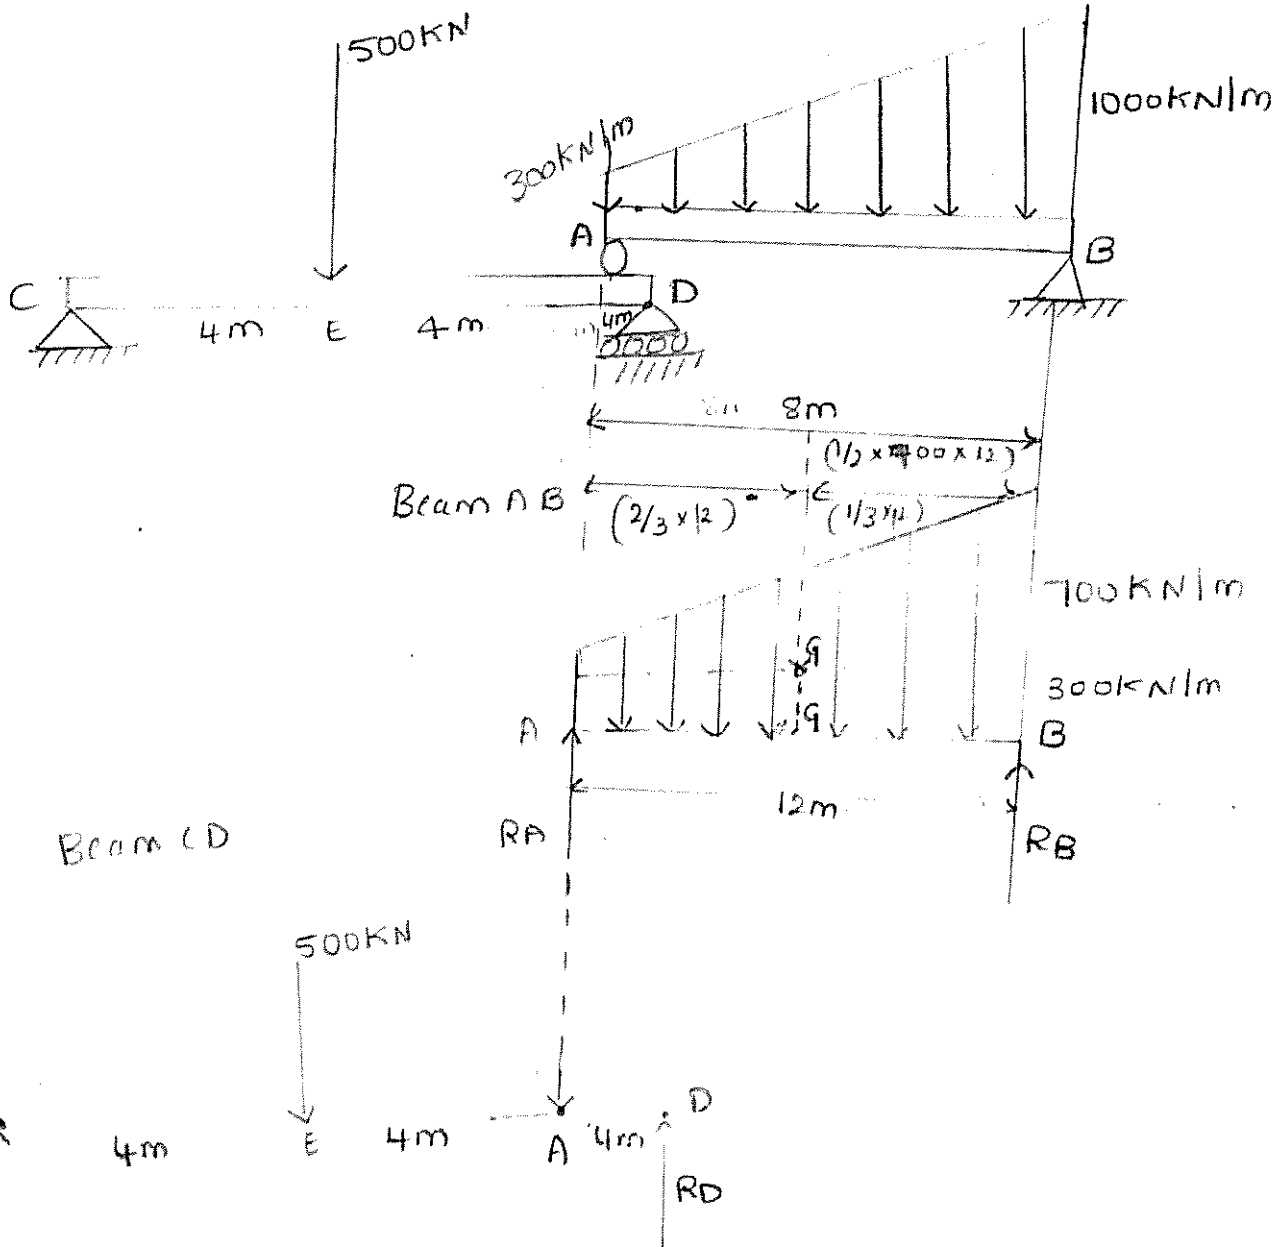 500KN
1000KN/m
300KN/m
A
B
C
D
4m E 4m
4m
8m
(1/2 x 700 x 12)
Beam AB
(2/3 x 12)
(1/3 x 12)
700KN/m
G
300KN/m
G
A
B
12m
RA
RB
Beam CD
500KN
4m E 4m A 4m D
RD